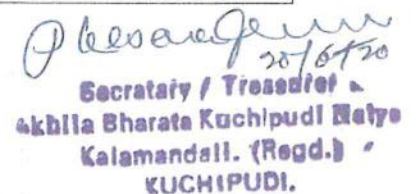 20/6/20
Secratary / Treasurer
Akhila Bharata Kuchipudi Natya
Kalamandali. (Regd.)
KUCHIPUDI.